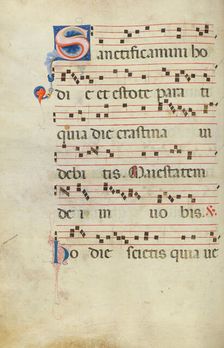 Sanctificamini ho
di e et estote para ti
quia die crastina ui
debi tis. Maiestatem
de i in uo bis. ℟.
ho die scietis quia ue